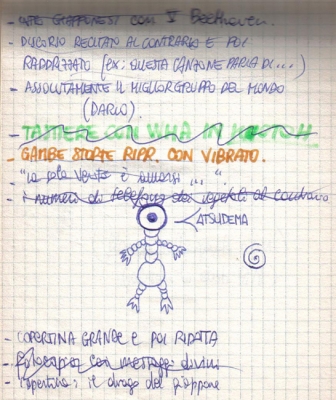 GIAPPONESI CON V Beethoven.
- DISCORSO RECITATO AL CONTRARIO E POI
RADDRIZZATO (ES: QUESTA CANZONE PARLA DI....)
- ASSOLUTAMENTE IL MIGLIOR GRUPPO DEL MONDO
(DARIO).
- TASTIERE CON WHA IN
- GAMBE STORTE RIPR. CON VIBRATO.
- "la sola verità è amarsi ... "
- i numeri di telefono dei vegetali al contrario
ATSUDEMA
- COPERTINA GRANDE E POI RIDATA
- con messaggi divini
- Copertina: il drago del giappone